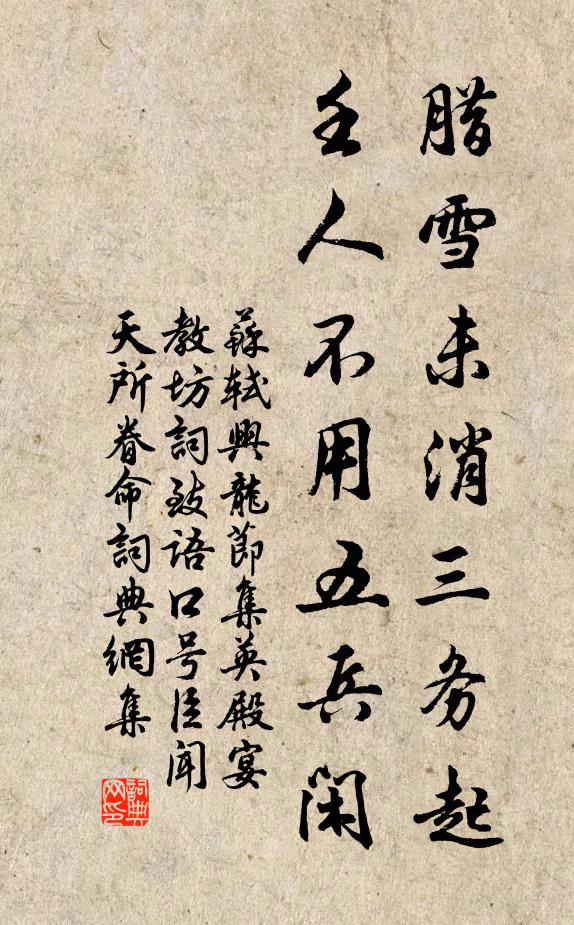 腊雪未消三务起
壬人不用五兵闲
蘇軾興龍節集英殿宴
教坊詞致語口号臣闻
天所眷命詞典網集
詞典网印